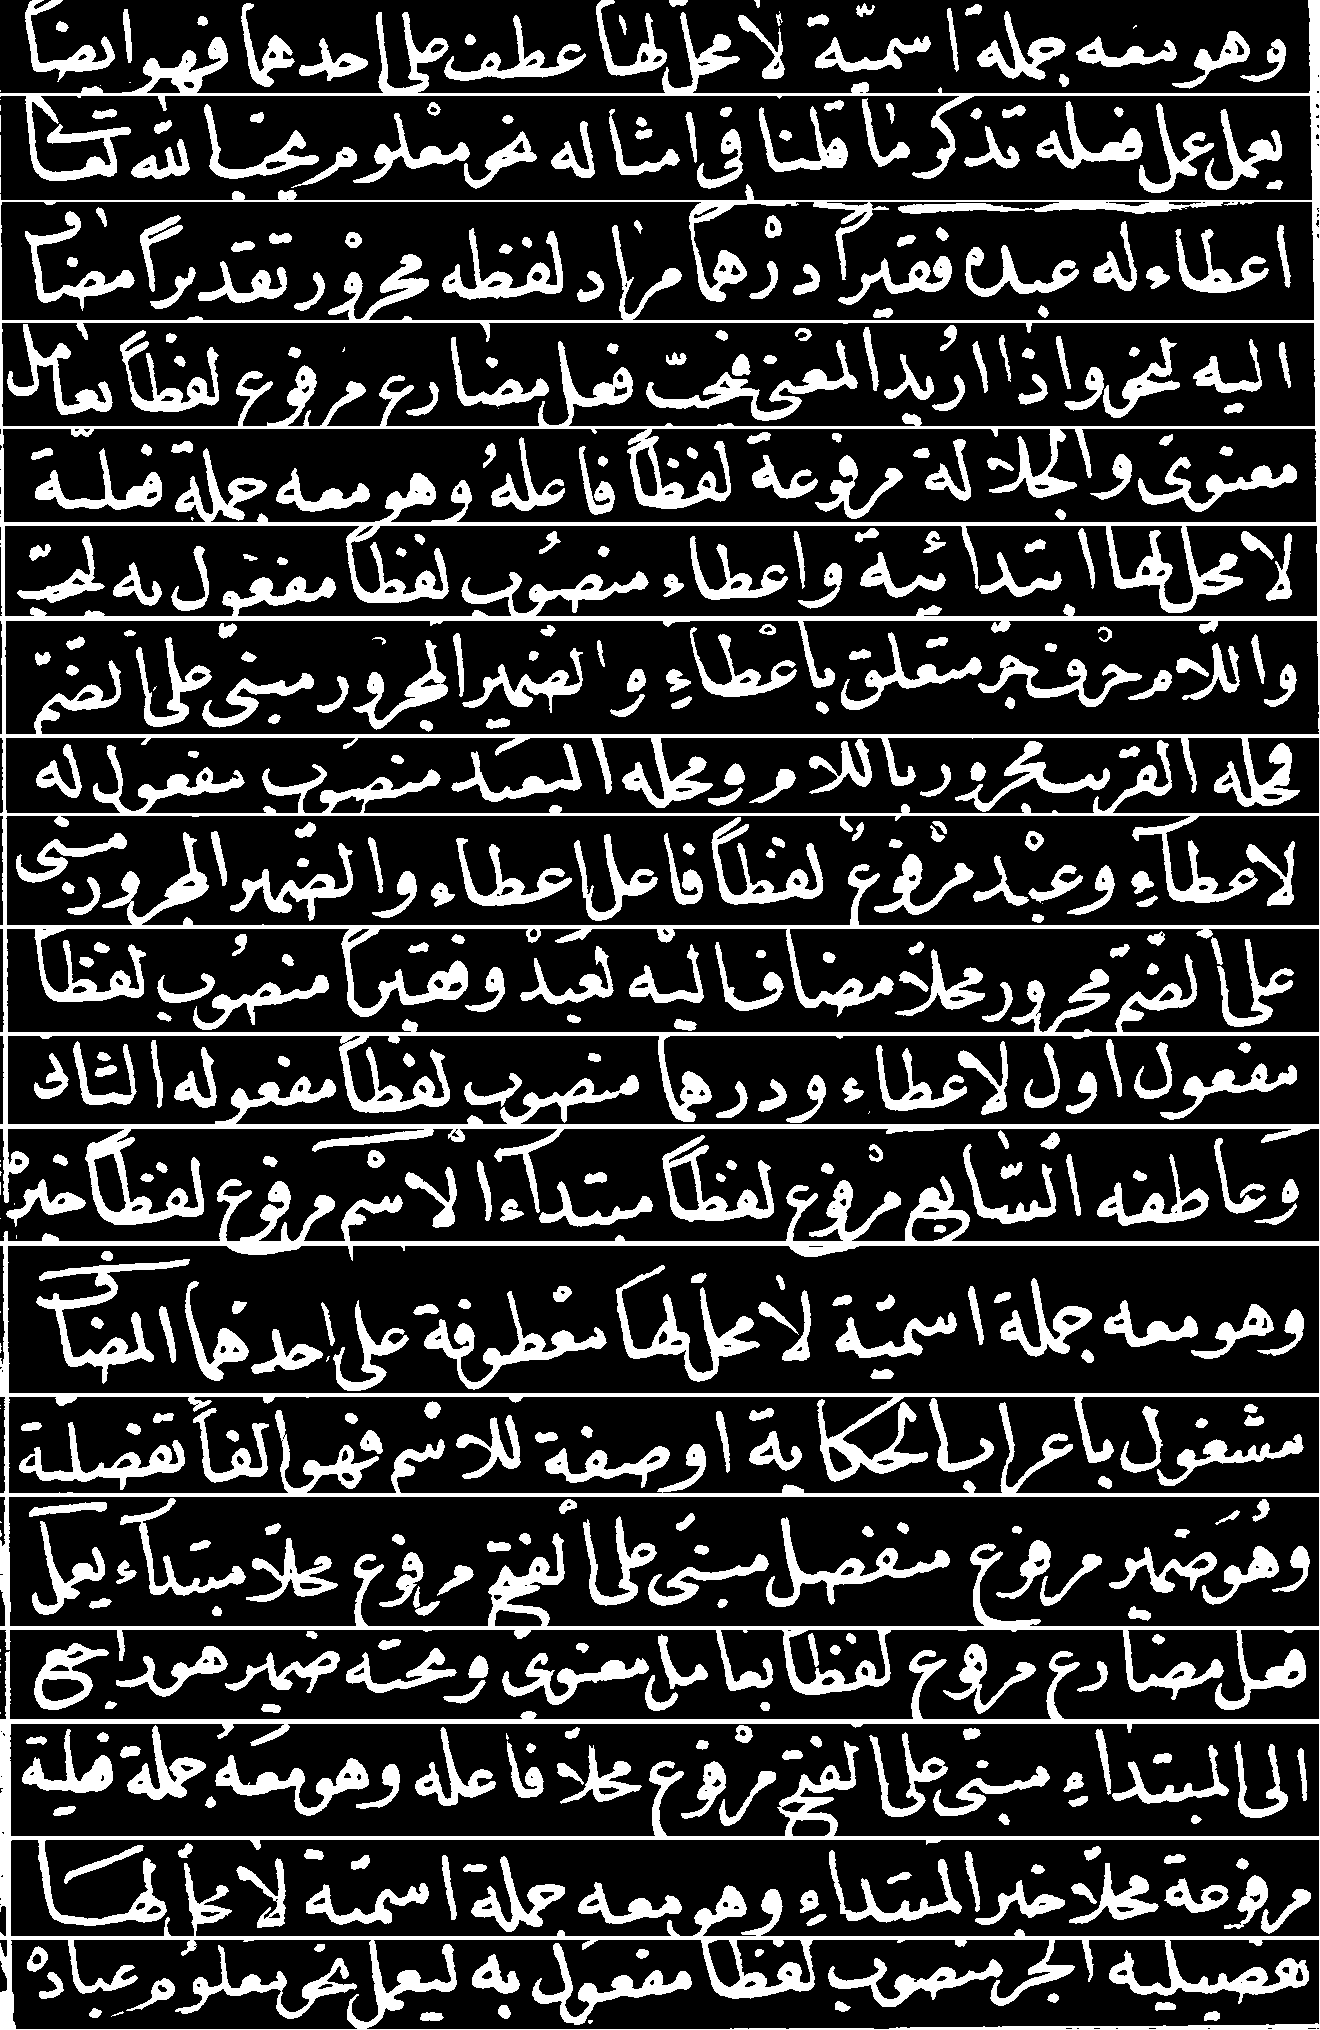 وهو معه جملة اسميّة لا محل لها عطف على احدهما فهو ايضاً
يعمل عمل فعله تذكر ما قلنا في امثاله نحو معلوم يحب الله تعالى
اعطاء له عبده فقيراً درْهماً مراد لفظه مجرورْ تقديراً مضاف
اليه لنحو واذا اريد المعْنى فيحبّ فعل مضارع مرفوع لفظاً بعامل
معنوى والجلالة مرفوعة لفظاً فاعلهُ وهو معه جملة فعليّة
لا محل لها ابتدائية واعطاء منصُوب لفظاً مفعول به ليحبّ
واللام حرْف جرّ متعلق باعْطاءِ والضمير المجرور مبنى على الضمّ
فمحله القريب مجرور باللام ومحله البعيد منصوب مفعول له
لاعطاءِ وعبْد مرْفوع لفظاً فاعل اعطاء والضّمير المجرور مبنى
على الضّم مجرور محلاً مضاف اليْه لعَبْدْ وفقيراً منصُوب لفظاً
مفعول اول لاعطاء ودرهما منصوب لفظاً مفعوله الثانى
وعَاطفه السّابع مرْفوع لفظاً مبتداء الاسْم مرفوع لفظاً خبرْ
وهو معه جملة اسميّة لا محلّ لها معْطوفة على احدهما المضاف
مشغول باعراب الحكاية او صفة للاسْم فهو الفاً تفصلية
وهُوَ ضمير مرفوع منفصل مبنى على الفتح مرفوع محلا مبتداء يعمل
فعل مضارع مرفوع لفظاً بعامل معنوى وتحته ضمير هو راجع
الى المبتداءِ مبنىّ على الفتح مرْفوع محلاً فاعله وهو معَهُ جملة فعلية
مرفوعة محلاً خبر المبتداءِ وهو معه جملة اسميّة لا محلّ لهَا
تفصيليه الجر منصوب لفظاً مفعول به ليعمل نحو معلوُم عبادْ